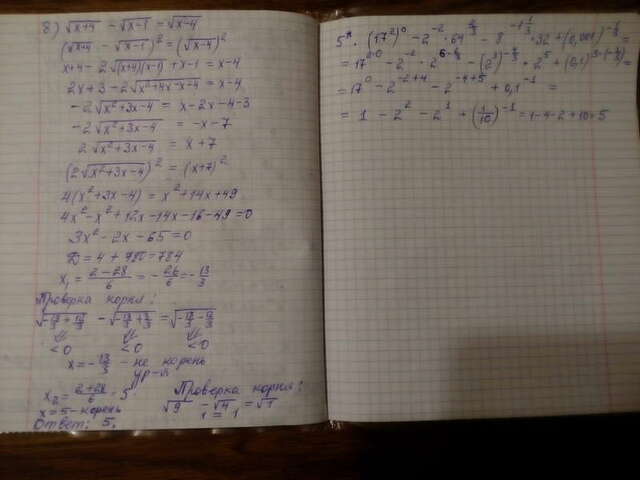 8) √x+4 - √x-1 = √x-4
(√x+4 - √x-1)² = (√x-4)²
x+4 - 2√(x+4)(x-1) + x-1 = x-4
2x+3 - 2√x²+4x-x-4 = x-4
-2√x²+3x-4 = x-2x-4-3
-2√x²+3x-4 = -x-7
2√x²+3x-4 = x+7
(2√x²+3x-4)² = (x+7)²
4(x²+3x-4) = x²+14x+49
4x²-x²+12x-14x-16-49=0
3x²-2x-65=0
D=4+780=784
x₁ = (2-28)/6 = -26/6 = -13/3
Проверка корня:
√-13/3+12/3 - √-13/3-3/3 = √-13/3-12/3
<0 <0 <0
x=-13/3 - не корень
ур-я
x₂ = (2+28)/6 = 5 Проверка корня:
x=5-корень √9 - √4 = √1
1 = 1
Ответ: 5.
5*. (17²)⁰ - 2⁻² · 64^(2/3) - 8^(-1 1/3) · 32 + (0,001)^(-1/3) =
= 17^(2·0) - 2⁻² · 2^(6·2/3) - (2³)^(-4/3) · 2⁵ + (0,1)^(3·(-1/3)) =
= 17⁰ - 2^(-2+4) - 2^(-4+5) + 0,1⁻¹ =
= 1 - 2² - 2¹ + (1/10)⁻¹ = 1-4-2+10=5